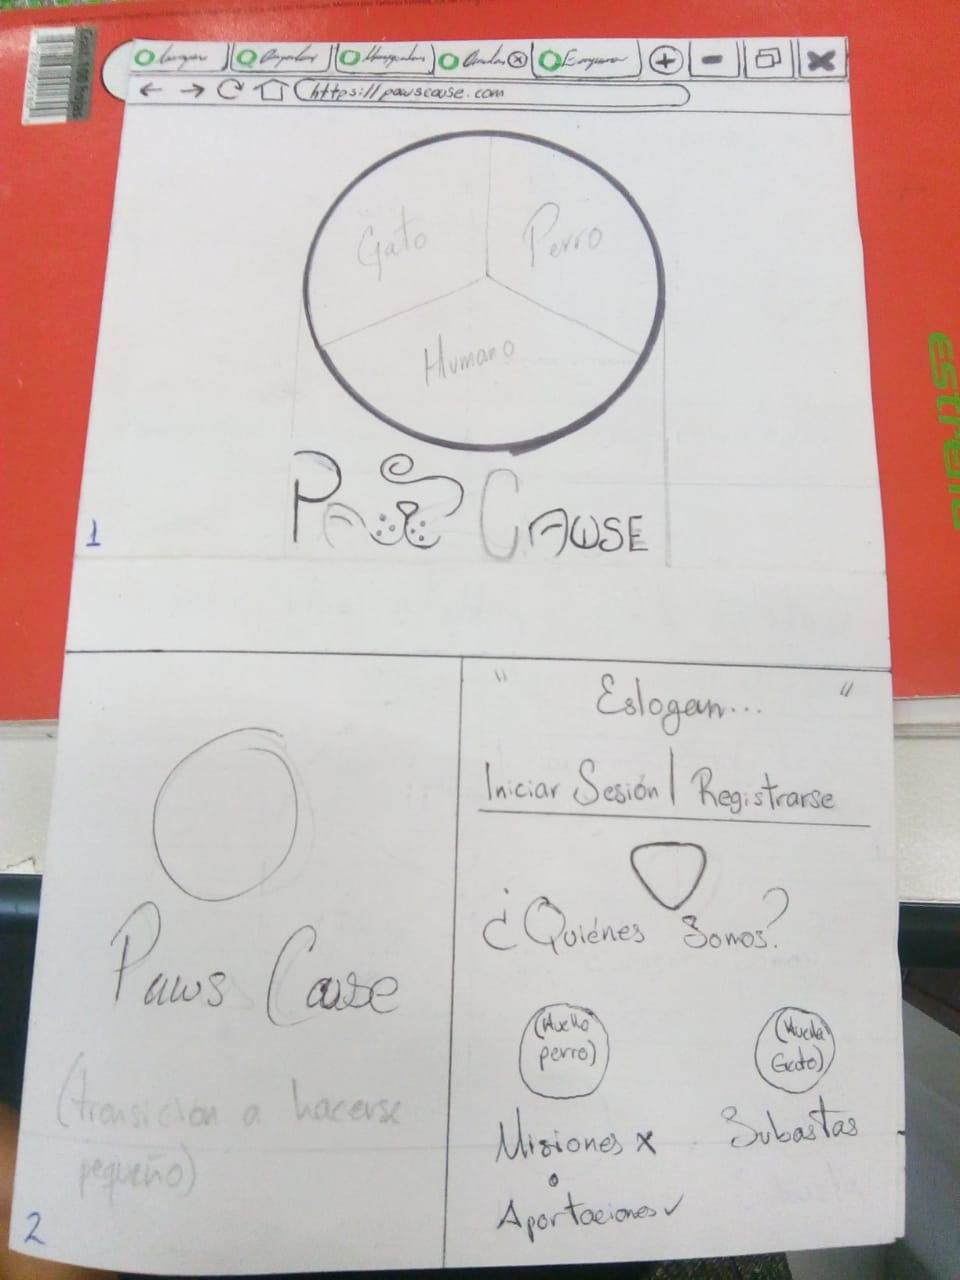 https://pawscause.com
Gato
Perro
Humano
PAWS CAUSE
1
Paws Cause
(transición a hacerse
pequeño)
2
" Eslogan... "
Iniciar Sesión | Registrarse
¿Quiénes Somos?
(Huella
perro)
(Huella
Gato)
Misiones x
o
Aportaciones ✓
Subastas